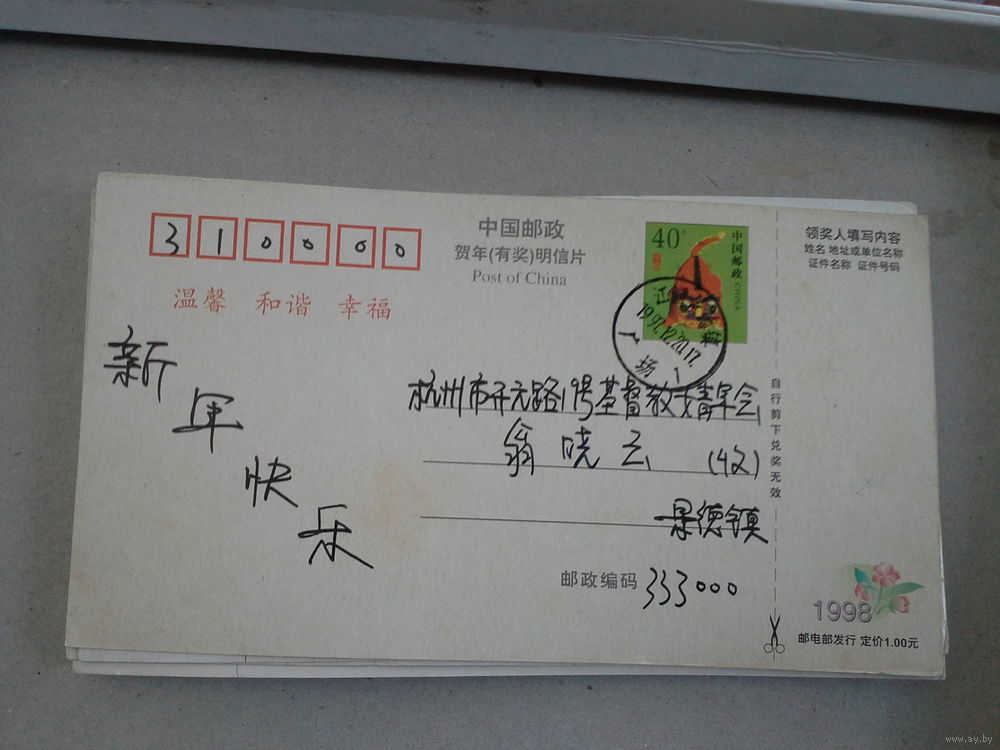 310000
中国邮政
贺年(有奖)明信片
Post of China
温馨 和谐 幸福
40
中国邮政 CHINA
1997.12.20.17.
广场
领奖人填写内容
姓名 地址或单位名称
证件名称 证件号码
新年快乐
杭州市开元路19号基督教女青年会
翁晓云 (收)
景德镇
邮政编码 333000
自行剪下兑奖无效
1998
邮电部发行 定价1.00元
www.ay.by